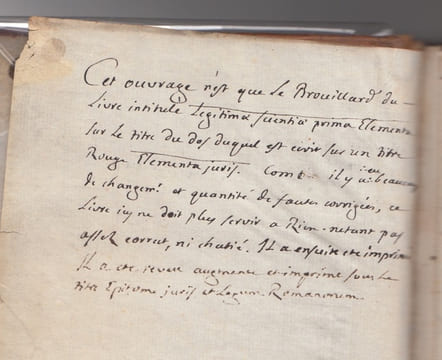 Cet ouvrage n'est que le Brouillard du
Livre intitulé Legitima scientiæ prima Elementa
sur le titre du dos duquel est ecrit sur un titre
Rouge Elementa juris. Come il y a eu beaucou
de changem.t et quantité de fautes corrigées, ce
Livre icy ne doit plus servir a Rien netant pas
assez correct, ni chatié. Il a ensuite eté imprim
Il a eté reveu augmenté et imprimé sous le
titre Epitome juris et Legum Romanorum